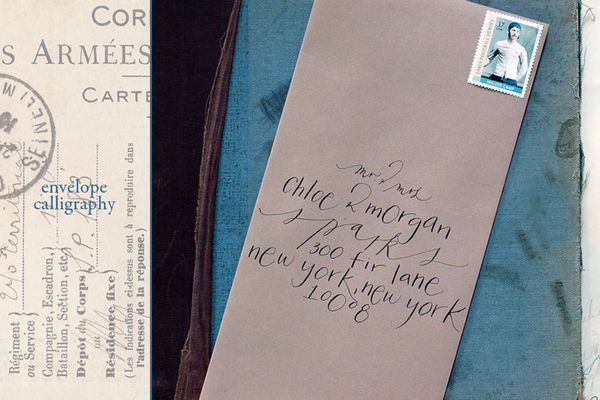 COR
S ARMÉES
CARTE
envelope
calligraphy
Régiment
ou Service)
Compagnie, Escadron,
Bataillon, Section, etc.
Dépôt du Corps
ou
Résidence fixe)
(Les indications ci-dessus sont à reproduire dans
l'adresse de la réponse.)
37
WALTER CAMP
mr. & mrs.
chloe & morgan
sparks
300 fir lane
new york, new york
10008